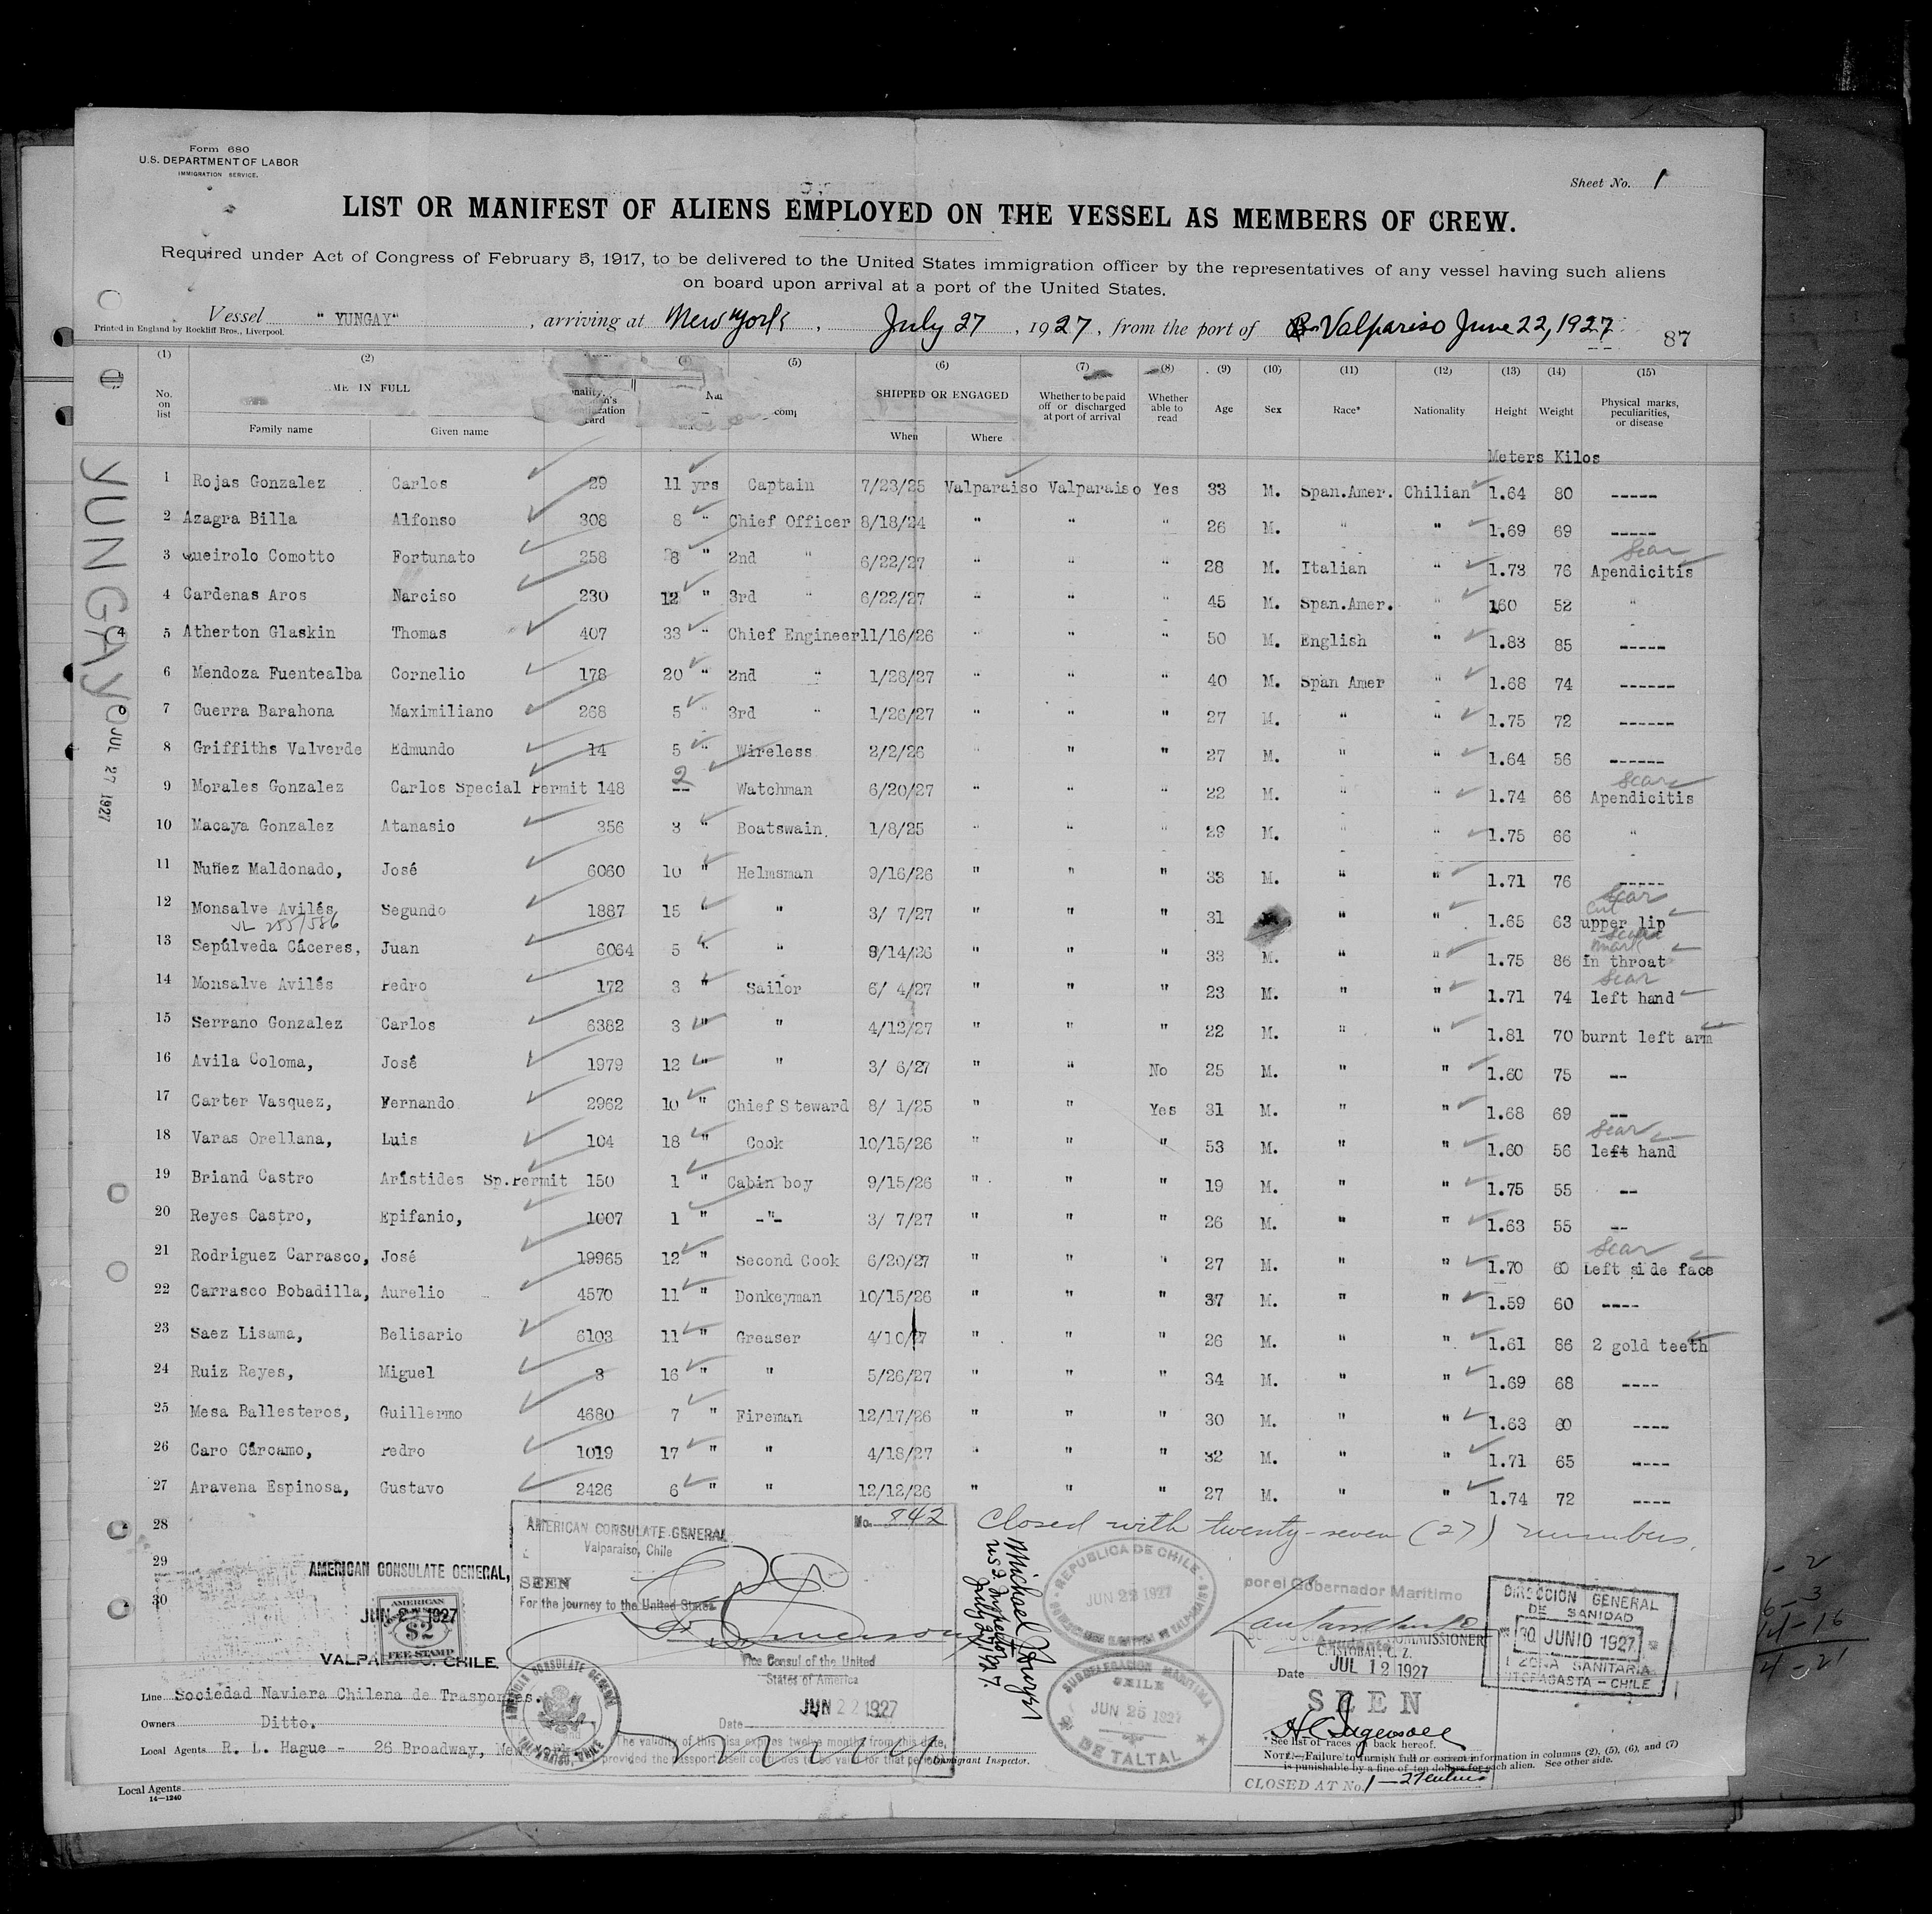 Form 680
U.S. DEPARTMENT OF LABOR
IMMIGRATION SERVICE.
Sheet No. 1
LIST OR MANIFEST OF ALIENS EMPLOYED ON THE VESSEL AS MEMBERS OF CREW.
Required under Act of Congress of February 5, 1917, to be delivered to the United States immigration officer by the representatives of any vessel having such aliens
on board upon arrival at a port of the United States.
Vessel "YUNGAY", arriving at New York, July 27, 1927, from the port of Valpariso June 22, 1927
Printed in England by Rockliff Bros., Liverpool.
87
(1) (2) (5) (6) (7) (8) (9) (10) (11) (12) (13) (14) (15)
No. on list ME IN FULL SHIPPED OR ENGAGED Whether to be paid off or discharged at port of arrival Whether able to read Age Sex Race* Nationality Height Weight Physical marks, peculiarities, or disease
Family name Given name When Where
Meters Kilos
1 Rojas Gonzalez Carlos 29 11 yrs Captain 7/23/25 Valparaiso Valparaiso Yes 33 M. Span.Amer. Chilian 1.64 80 -----
2 Azagra Billa Alfonso 308 8 " Chief Officer 8/18/24 " " " 26 M. " " 1.69 69 -----
3 Queirolo Comotto Fortunato 258 8 " 2nd " 6/22/27 " " " 28 M. Italian " 1.73 76 Scar Apendicitis
4 Cardenas Aros Narciso 230 12 " 3rd " 6/22/27 " " " 45 M. Span.Amer. " 160 52 "
5 Atherton Glaskin Thomas 407 33 " Chief Engineer 11/16/26 " " " 50 M. English " 1.83 85 -----
6 Mendoza Fuentealba Cornelio 178 20 " 2nd " 1/28/27 " " " 40 M. Span Amer " 1.68 74 ------
7 Guerra Barahona Maximiliano 268 5 " 3rd " 1/26/27 " " " 27 M. " " 1.75 72 ------
8 Griffiths Valverde Edmundo 14 5 " Wireless 2/2/26 " " " 27 M. " " 1.64 56 ------
9 Morales Gonzalez Carlos Special Permit 148 2 -- Watchman 6/20/27 " " " 22 M. " " 1.74 66 Scar Apendicitis
10 Macaya Gonzalez Atanasio 356 3 " Boatswain. 1/8/25 " " " 29 M. " " 1.75 66 "
11 Nuñez Maldonado, José 6060 10 " Helmsman 9/16/26 " " " 33 M. " " 1.71 76 -----
12 Monsalve Avilés Segundo 1887 15 " " 3/ 7/27 " " " 31 " " 1.65 63 Scar cut upper lip
VL 255/586
13 Sepúlveda Cáceres, Juan 6064 5 " " 9/14/26 " " " 33 M. " " 1.75 86 mark In throat
14 Monsalve Avilés Pedro 172 3 " Sailor 6/ 4/27 " " " 23 M. " " 1.71 74 Scar left hand
15 Serrano Gonzalez Carlos 6382 3 " " 4/12/27 " " " 22 M. " " 1.81 70 burnt left arm
16 Avila Coloma, José 1979 12 " " 3/ 6/27 " " No 25 M. " " 1.60 75 --
17 Carter Vasquez, Fernando 2962 10 " Chief Steward 8/ 1/25 " " Yes 31 M. " " 1.68 69 --
18 Varas Orellana, Luis 104 18 " Cook 10/15/26 " " " 53 M. " " 1.60 56 Scar left hand
19 Briand Castro Arístides Sp.Permit 150 1 " Cabin boy 9/15/26 " " " 19 M. " " 1.75 55 --
20 Reyes Castro, Epifanio, 1007 1 " -"- 3/ 7/27 " " " 26 M. " " 1.63 55 --
21 Rodriguez Carrasco, José 19965 12 " Second Cook 6/20/27 " " " 27 M. " " 1.70 60 Scar Left side face
22 Carrasco Bobadilla, Aurelio 4570 11 " Donkeyman 10/15/26 " " " 37 M. " " 1.59 60 ----
23 Saez Lisama, Belisario 6103 11 " Greaser 4/10/27 " " " 26 M. " " 1.61 86 2 gold teeth
24 Ruiz Reyes, Miguel 3 16 " " 5/26/27 " " " 34 M. " " 1.69 68 ----
25 Mesa Ballesteros, Guillermo 4680 7 " Fireman 12/17/26 " " " 30 M. " " 1.63 60 ----
26 Caro Cárcamo, Pedro 1019 17 " " 4/18/27 " " " 32 M. " " 1.71 65 ----
27 Aravena Espinosa, Gustavo 2426 6 " " 12/12/26 " " " 27 M. " " 1.74 72 ----
28
29
30
YUNGAY
JUL 27 1927
Closed with twenty-seven (27) members.
AMERICAN CONSULATE GENERAL
Valparaiso, Chile
No. 842
SEEN
For the journey to the United States
Vice Consul of the United
States of America
Date JUN 22 1927
The validity of this visa expires twelve months from this date,
provided the passport itself continues to be valid for that period.
AMERICAN CONSULATE GENERAL,
JUN 22 1927
AMERICAN
$2
FEE STAMP
VALPARAISO, CHILE.
AMERICAN CONSULATE GENERAL
VALPARAISO, CHILE
Michael
U.S. Inspector
July 27, 1927.
REPUBLICA DE CHILE
JUN 22 1927
SUBDELEGACION MARITIMA
CHILE
JUN 25 1927
DE TALTAL
por el Gobernador Marítimo
COMMISSIONER
CRISTOBAL, C. Z.
Date JUL 12 1927
SEEN
CLOSED AT No. 1-27
DIRECCION GENERAL
DE SANIDAD
30 JUNIO 1927
I ZONA SANITARIA
ANTOFAGASTA - CHILE
Line Sociedad Naviera Chilena de Trasportes.
Owners Ditto.
Local Agents R. L. Hague - 26 Broadway, New York
Immigrant Inspector.
*See list of races on back hereof.
NOTE.—Failure to furnish full or correct information in columns (2), (5), (6), and (7)
is punishable by a fine of ten dollars for each alien. See other side.
Local Agents
14—1240